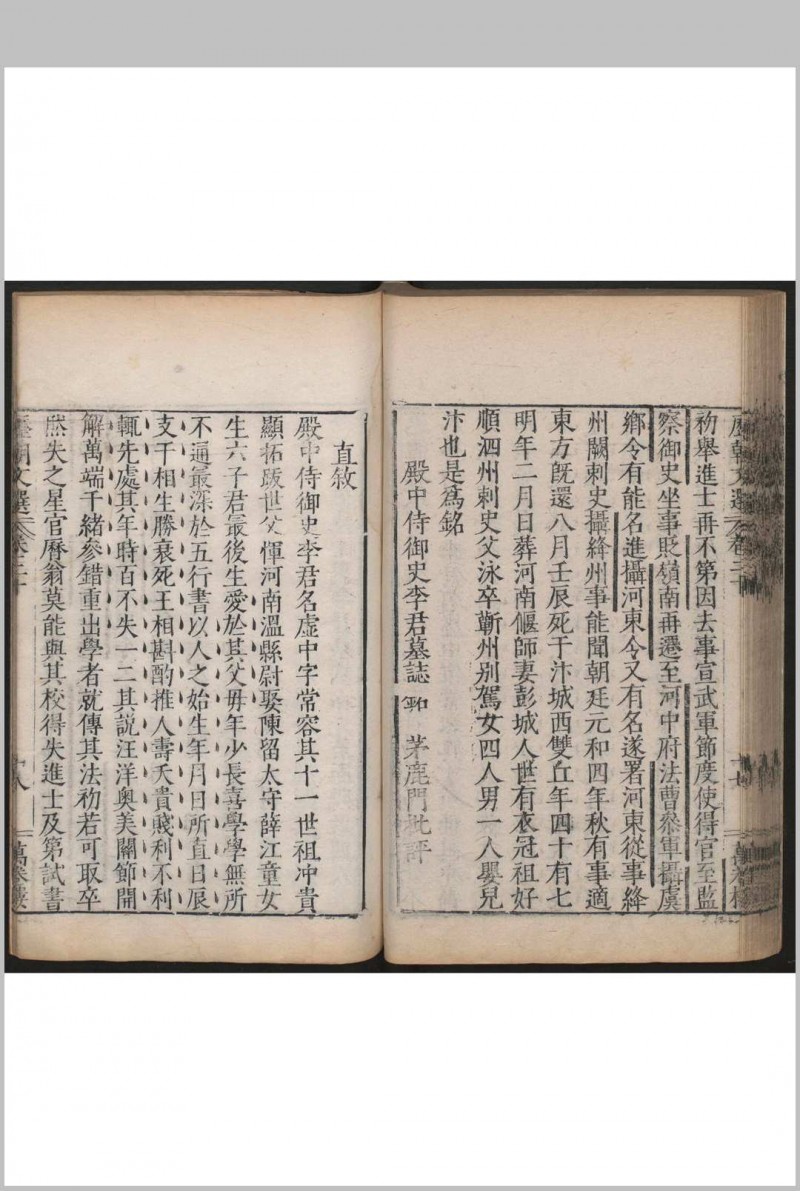 歷朝文選 卷二十
初舉進士再不第因去事宣武軍節度使得官至監
察御史坐事貶嶺南再遷至河中府法曹叅軍攝虞
鄉令有能名進攝河東令又有名遂署河東從事絳
州闕刺史攝絳州事能聞朝廷元和四年秋有事適
東方旣還八月壬辰死于汴城西雙丘年四十有七
明年二月日葬河南偃師妻彭城人世有衣冠祖好
順泗州刺史父泳卒蘄州别駕女四人男一人嬰兒
汴也是爲銘
殿中侍御史李君墓誌 茅鹿門批評
直敘
殿中侍御史李君名虛中字常容其十一世祖冲貴
顯拓跋世父惲河南溫縣尉娶陳留太守薛江童女
生六子君最後生愛於其父毋年少長喜學學無所
不通最深於五行書以人之始生年月日所直日辰
支干相生勝衰死王相斟酌推人壽夭貴賤利不利
輒先處其年時百不失一二其説汪洋奧美關節開
解萬端千緒參錯重出學者就傳其法初若可取卒
然失之星官曆翁莫能與其校得失進士及第試書
歷朝文選 卷二十 十八